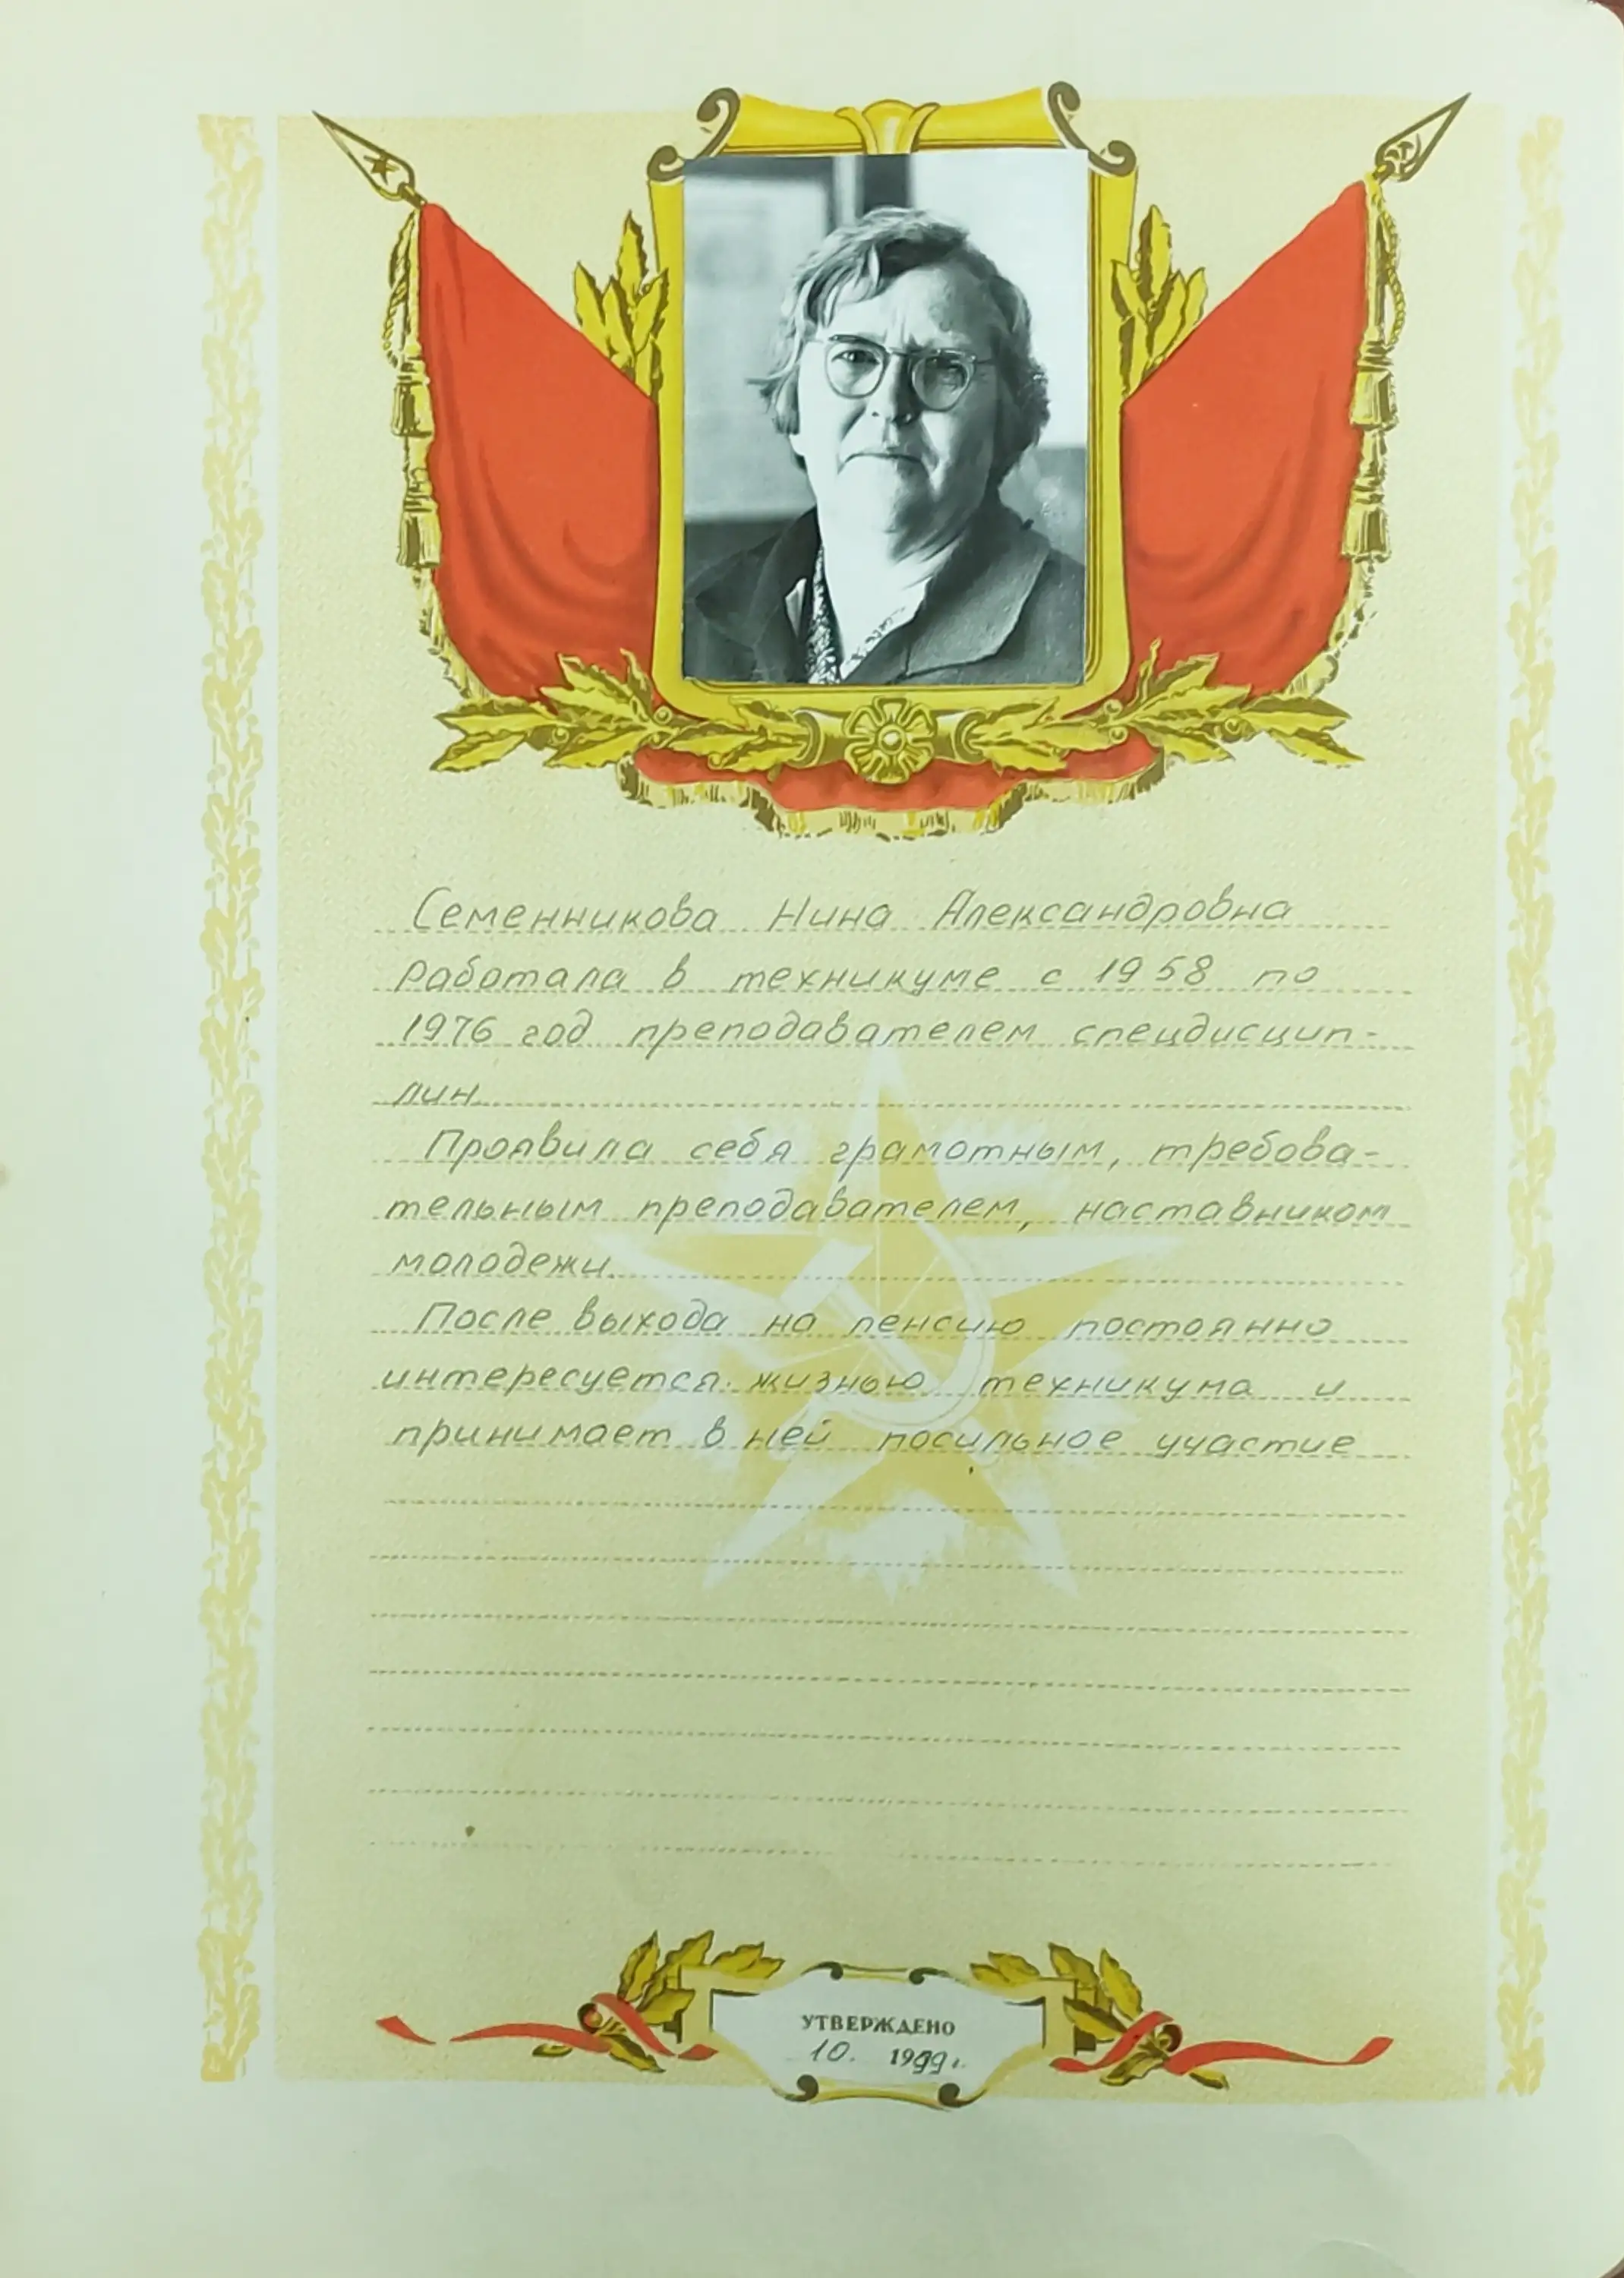 Семенникова Нина Александровна
работала в техникуме с 1958 по
1976 год преподавателем спецдисцип-
лин.
Проявила себя грамотным, требова-
тельным преподавателем, наставником
молодежи.
После выхода на пенсию постоянно
интересуется жизнью техникума и
принимает в ней посильное участие
УТВЕРЖДЕНО
10. 1999 г.